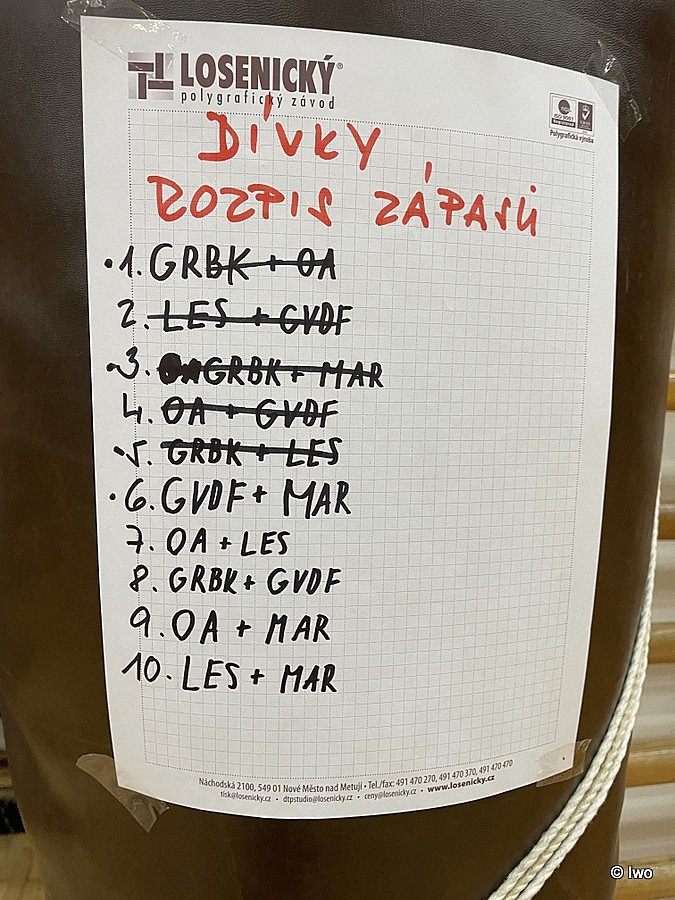 LOSENICKÝ®
polygrafický závod
ISO 9001
Polygrafická výroba
DÍVKY
ROZPIS ZÁPASŮ
1. GRBK + OA
2. LES + GVDF
3. GRBK + MAR
4. OA + GVDF
5. GRBK + LES
6. GVDF + MAR
7. OA + LES
8. GRBK + GVDF
9. OA + MAR
10. LES + MAR
Náchodská 2100, 549 01 Nové Město nad Metují • Tel./fax: 491 470 270, 491 470 370, 491 470 470
tisk@losenicky.cz • dtpstudio@losenicky.cz • ceny@losenicky.cz • www.losenicky.cz
© Iwo